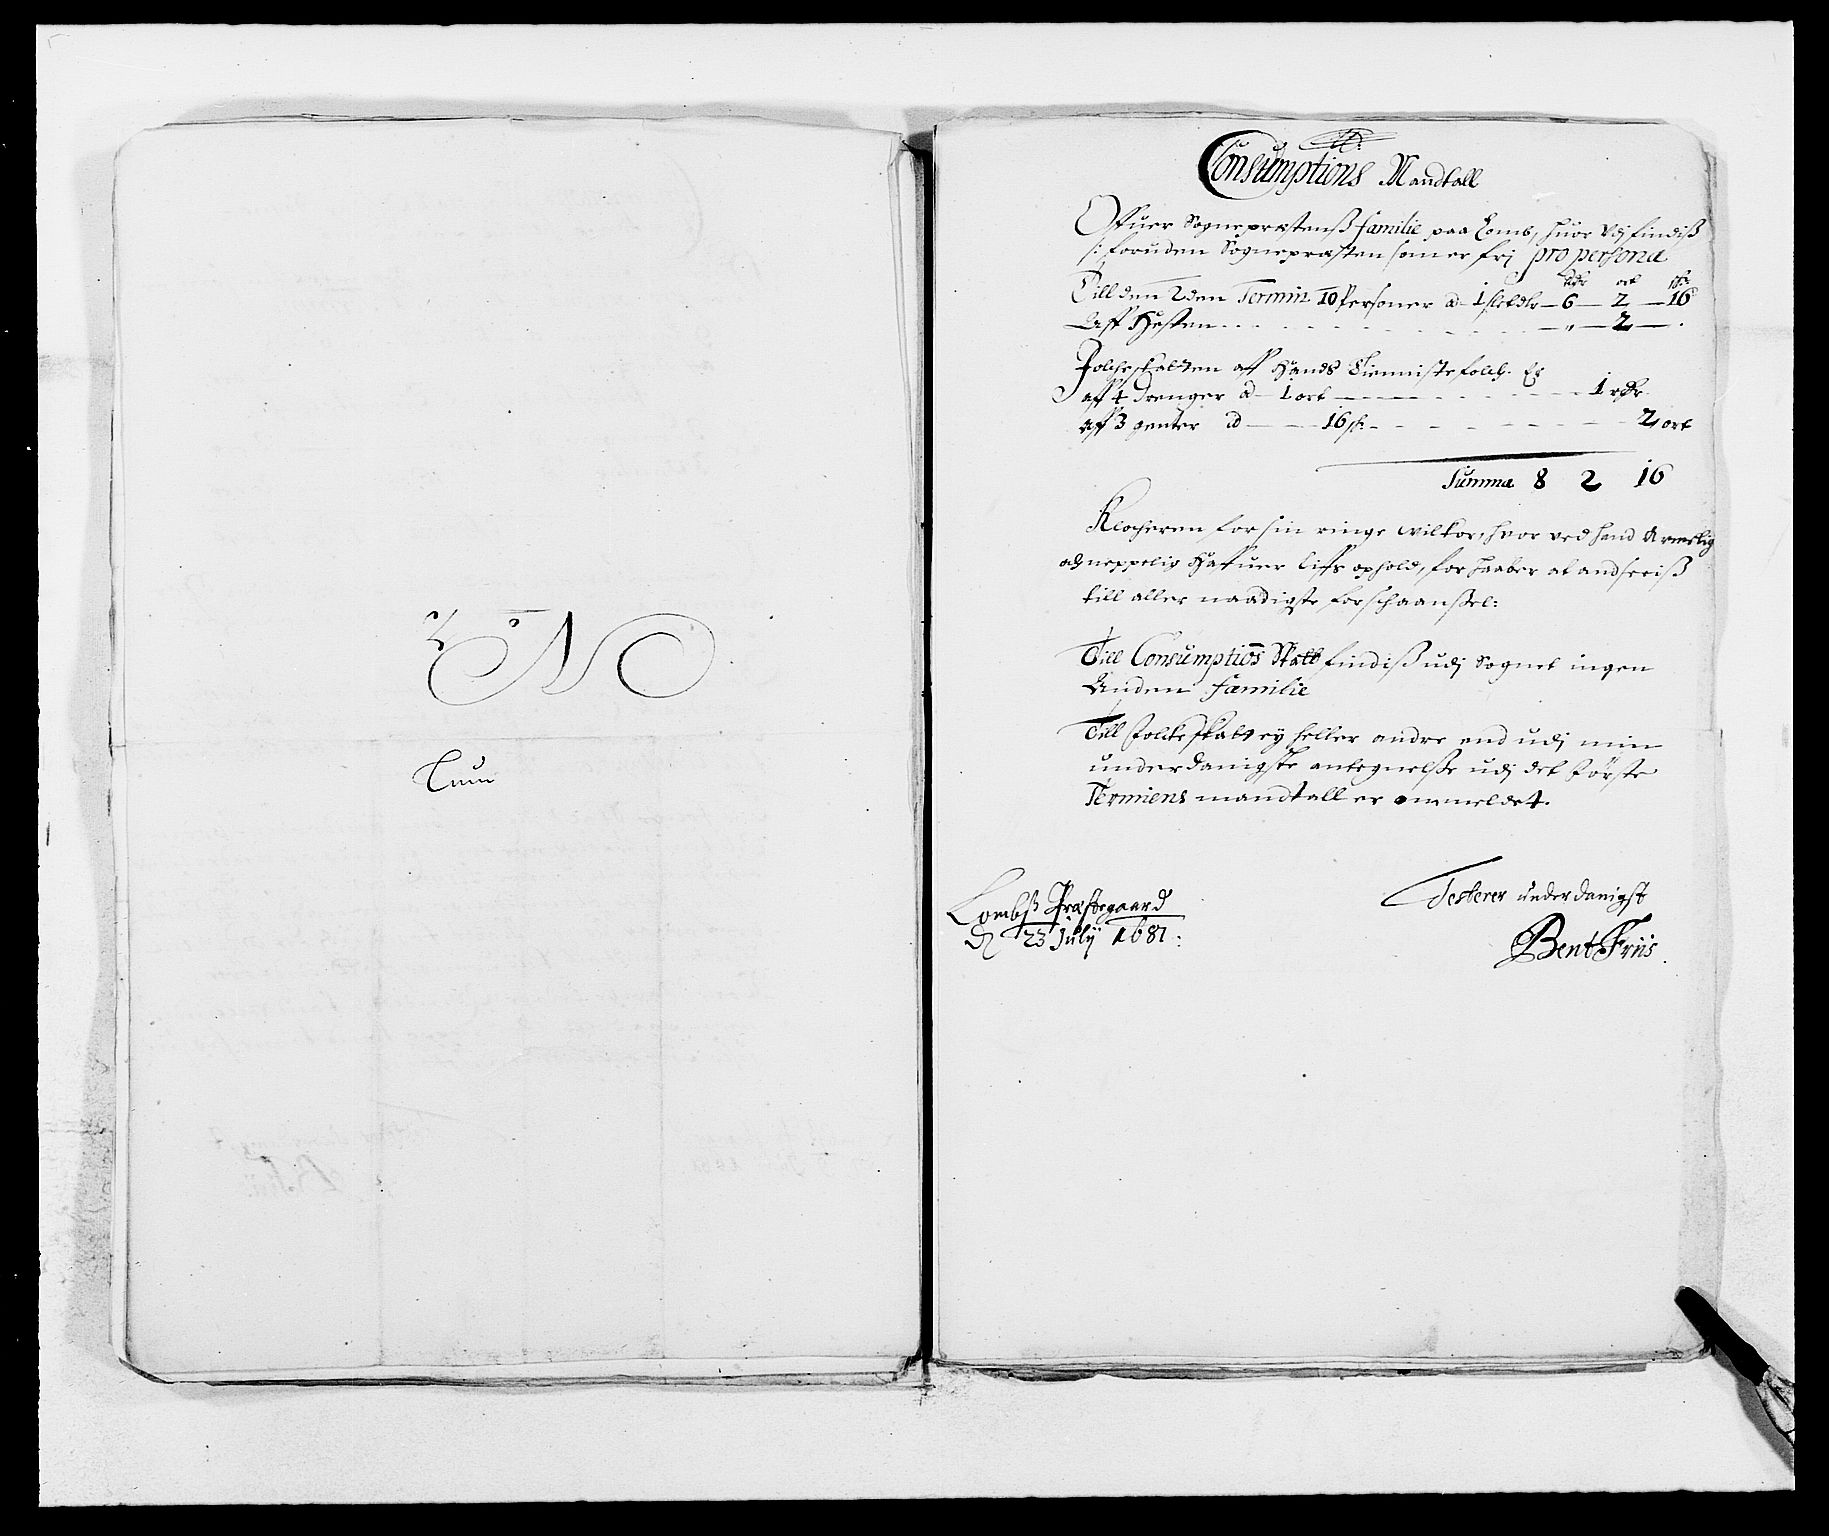 No
Consumptions Mandtall
Offuer Sognepræstenß familie paa Lomb, huor udj findiß
/: foruden Sognepræsten som er frj pro persona
rdr ort sk
Till den 2den Termin 10 Personer a 1 sletdlr — 6 — 2 — 16
Aff Hesten — " — 2 — .
Folcheskatten aff Hands Tienniste folch. Er
aff 4 drenger a 1 ort — 1 rdr
aff 3 genter a — 16 sk — 2 ort
Summa 8 2 16
Klocheren for sin ringe wilkor, hvor ved hand Armelig
och neppelig Haffuer liffs ophold, forhaaber at andseeiß
till aller naadigste forschaanßel:
Till Consumptions Skatt findiß udj Sognet ingen
Anden familie
Till Folcke skatt ey heller andre end udj min
underdanigste antegnelße udj det første
Termiens mandtall er ommeldet.
Lombß Præstegaard
d 23 Julij 1681:
Testerer underdanigst
Bent Friis